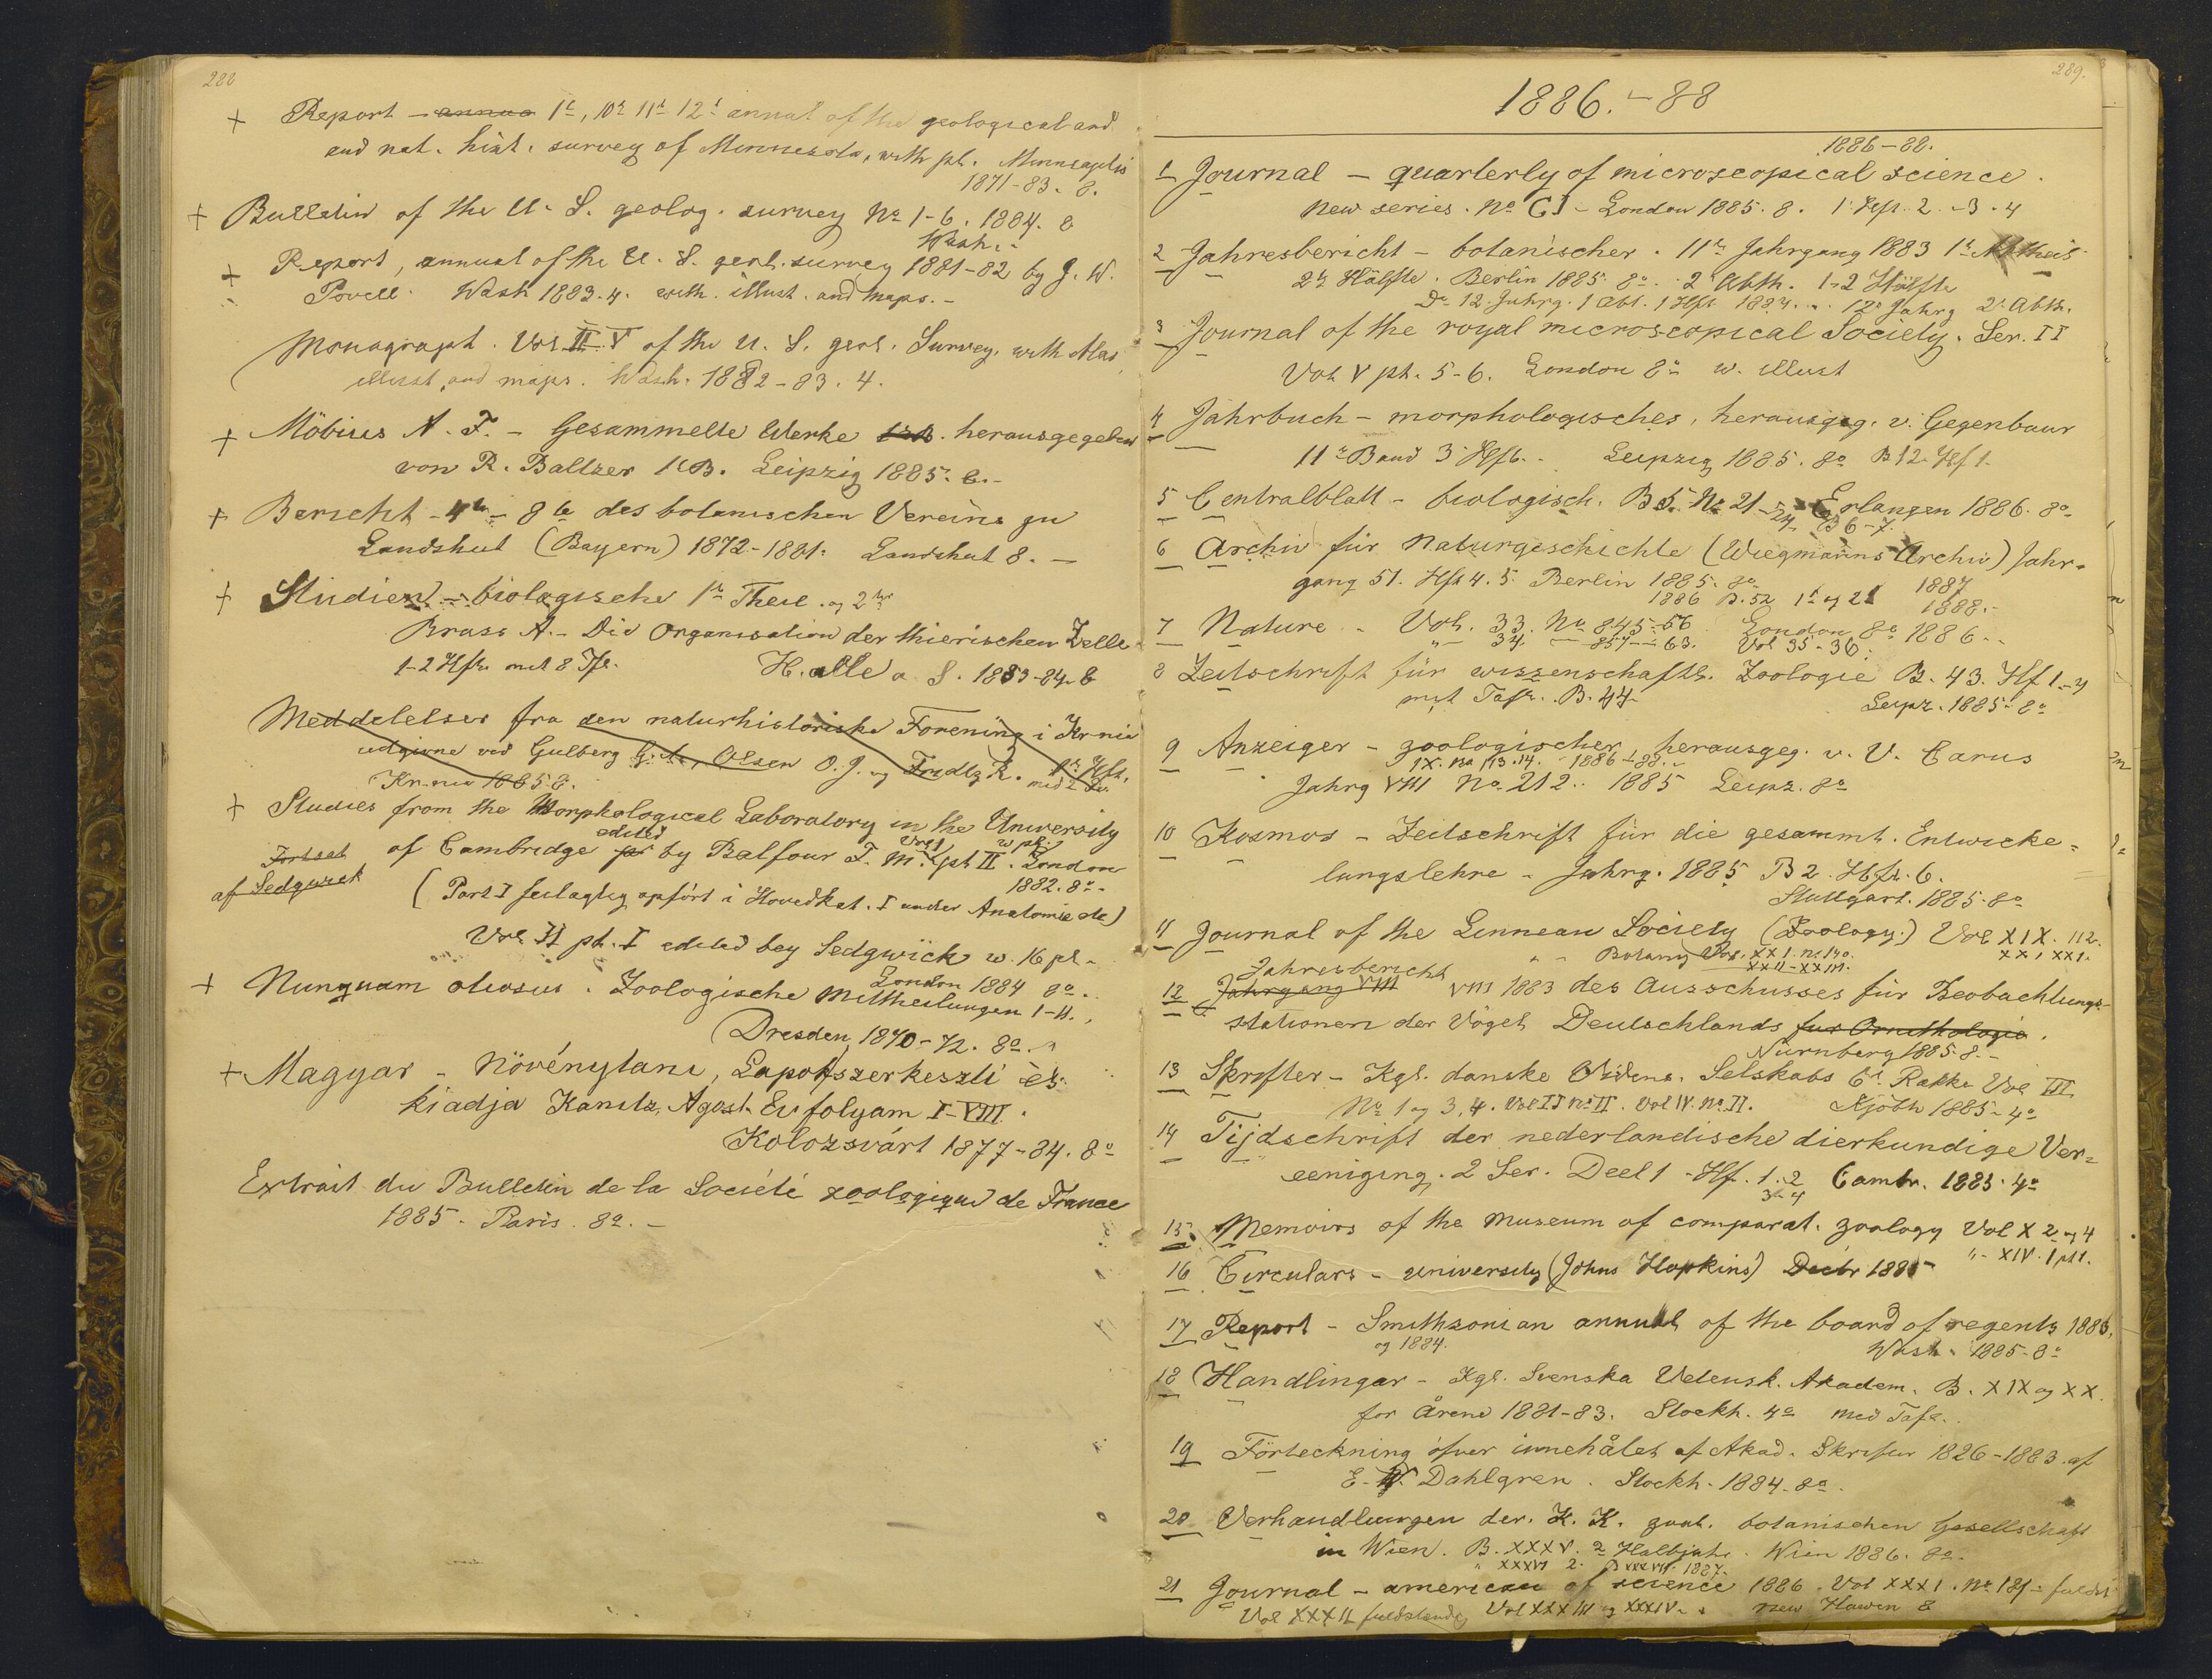 288
+ Report - annua 1t, 10t 11t 12t annual of the geological and
and nat. hist. survey of Minnesota, with pl. Minneapolis
1871-83. 8.
+ Bulletin of the U. S. geolog. survey No 1-6. 1884. 8
Wash.
+ Report, annual of the U. S. geol. survey 1881-82 by J. W.
Powell. Wash 1883. 4. with. illust. and maps. -
Monograph. Vol. II. V of the U. S. geol. Survey. with Atlas,
illust, and maps. Wash. 1882-83. 4.
+ Möbius A. F. - Gesammelte Werke herausgegeben
von R. Baltzer 1 B. Leipzig 1885. 8. -
+ Bericht - 4te - 8te des botanischen Vereins zu
Landshut (Bayern) 1872-1881. Landshut 8. -
+ Studien - biologische 1te Theil. og 2te
Brass A. - Die Organisation der thierischen Zelle
1-2 Hfte mit 8 Tfl. Halle a. S. 1883-84. 8
Meddelelser fra den naturhistoriske Forening i Kr.nia
udgivne ved Gulberg G. A., Olsen O. J. og 1te Hft.
Kr.nia 1885 8.
+ Studies from the Morphological Laboratory in the University
edited Vol I w pl.
Fortsat of Cambridge by Balfour F. M. pt II. London
af Sedgwick 1882. 8o.
(Part I feilagtig opført i Hovedkat. I under Anatomie etc)
Vol II pt. I edited by Sedgwick w. 16 pl. -
London 1884 8o.
+ Nunquam otiosus. Zoologische Mittheilungen 1-II.,
Dresden, 1870-72. 8o.
+ Magyar - Növénytani, Lapok szerkeszti és
kiadja Kanitz, Agost. Evfolyam I-VIII.
Kolozsvárt 1877-84. 8o
Extrait du Bulletin de la Société zoologique de France
1885. Paris. 8o. -
289.
1886. - 88
1886-88.
1 Journal - quarterly of microscopical science.
New series. No CI - London 1885. 8. 1. Hft. 2. -3. 4
2 Jahresbericht - botanischer. 11te Jahrgang 1883 1te Abtheil.
2te Hälfte. Berlin 1885. 8o. 2 Abth. 1-2 Hälfte
Do 12. Jahrg. 1 Abt. 1 Hft 1884. 12te Jahrg 2. Abth.
3 Journal of the royal microscopical Society. Ser. II
Vol. V pt. 5-6. London 8o w. illust
4 Jahrbuch - morphologisches, herausgeg. v. Gegenbaur
11te Band 3 Hft. - Leipzig 1885. 8o B 12. Hf 1.
5 Centralblatt - biologisch. B 5. No 21-24 Erlangen 1886. 8o
B 6-7.
6 Archiv für Naturgeschichte (Wiegmanns Archiv) Jahr-
gang 51. Hft 4. 5. Berlin 1885. 8o 1887
1886 B. 52 1t og 2t 1888. -
7 Nature - Vol. 33. No 845-56 London 8o 1886. -
" - 34 - 857-63. Vol 35-36.
8 Zeitschrift für wissenschaftl. Zoologie B. 43. Hf 1-4
mit Tafl. B. 44. Leipz. 1885. 8o
9 Anzeiger - zoologischer herausgeg. v. V. Carus
IX. No 113. 14. 1886-88.
Jahrg VIII No. 212. 1885 Leipz. 8o
10 Kosmos - Zeitschrift für die gesammt. Entwicke-
lungslehre - Jahrg. 1885 B 2. Hft. 6.
Stuttgart. 1885. 8o
11 Journal of the Linnean Society (Zoology.) Vol XIX. 112.
" - Botany Vol. XXI. No 140. XX, XXI.
XXII-XXIII.
Jahresbericht
12 Jahrgang VIII VIII 1883 des Ausschusses für Beobachtungs-
stationen der Vögel Deutschlands für Ornithologie.
Nürnberg 1885. 8. -
13 Skrifter - Kgl. danske Vidensk. Selskabs 6te Række Vol III
No 1 og 3, 4. Vol II No II. Vol IV. No II. Kjöbh 1885 - 4o
14 Tijdschrift der nederlandische dierkundige Ver-
eeniging. 2 Ser. Deel 1 - Hf. 1. 2 1885. 4o
3-4
15. Memoirs of the Museum of comparat. zoology Vol X 2 og 4
" - XIV. 1 pt 1.
16 Circulars - university (Johns Hopkins) Decbr 1885
17 Report - Smithsonian annual of the board of regents 1883,
og 1884. Wash. 1885. 8o
18 Handlingar - Kgl. Svenska Vetensk. Akadem. B. XIX og XX.
for Årene 1881-83. Stockh. 4o med Tafl.
19 Förteckning öfver innehålet af Akad. Skrifter 1826-1883 af
E. W. Dahlgren. Stockh. 1884. 8o.
20 Verhandlungen der. K. K. zool. botanischen Gesellschaft
in Wien. B. XXXV. 2 Halbjahr. Wien 1886. 8o.
" XXXVI 2. B XXXVII. 1887.
21 Journal - american of science 1886. Vol XXXI. No 181 - fuldst
Vol XXXII fuldstændig Vol XXXIII og XXXIV. New Haven 8